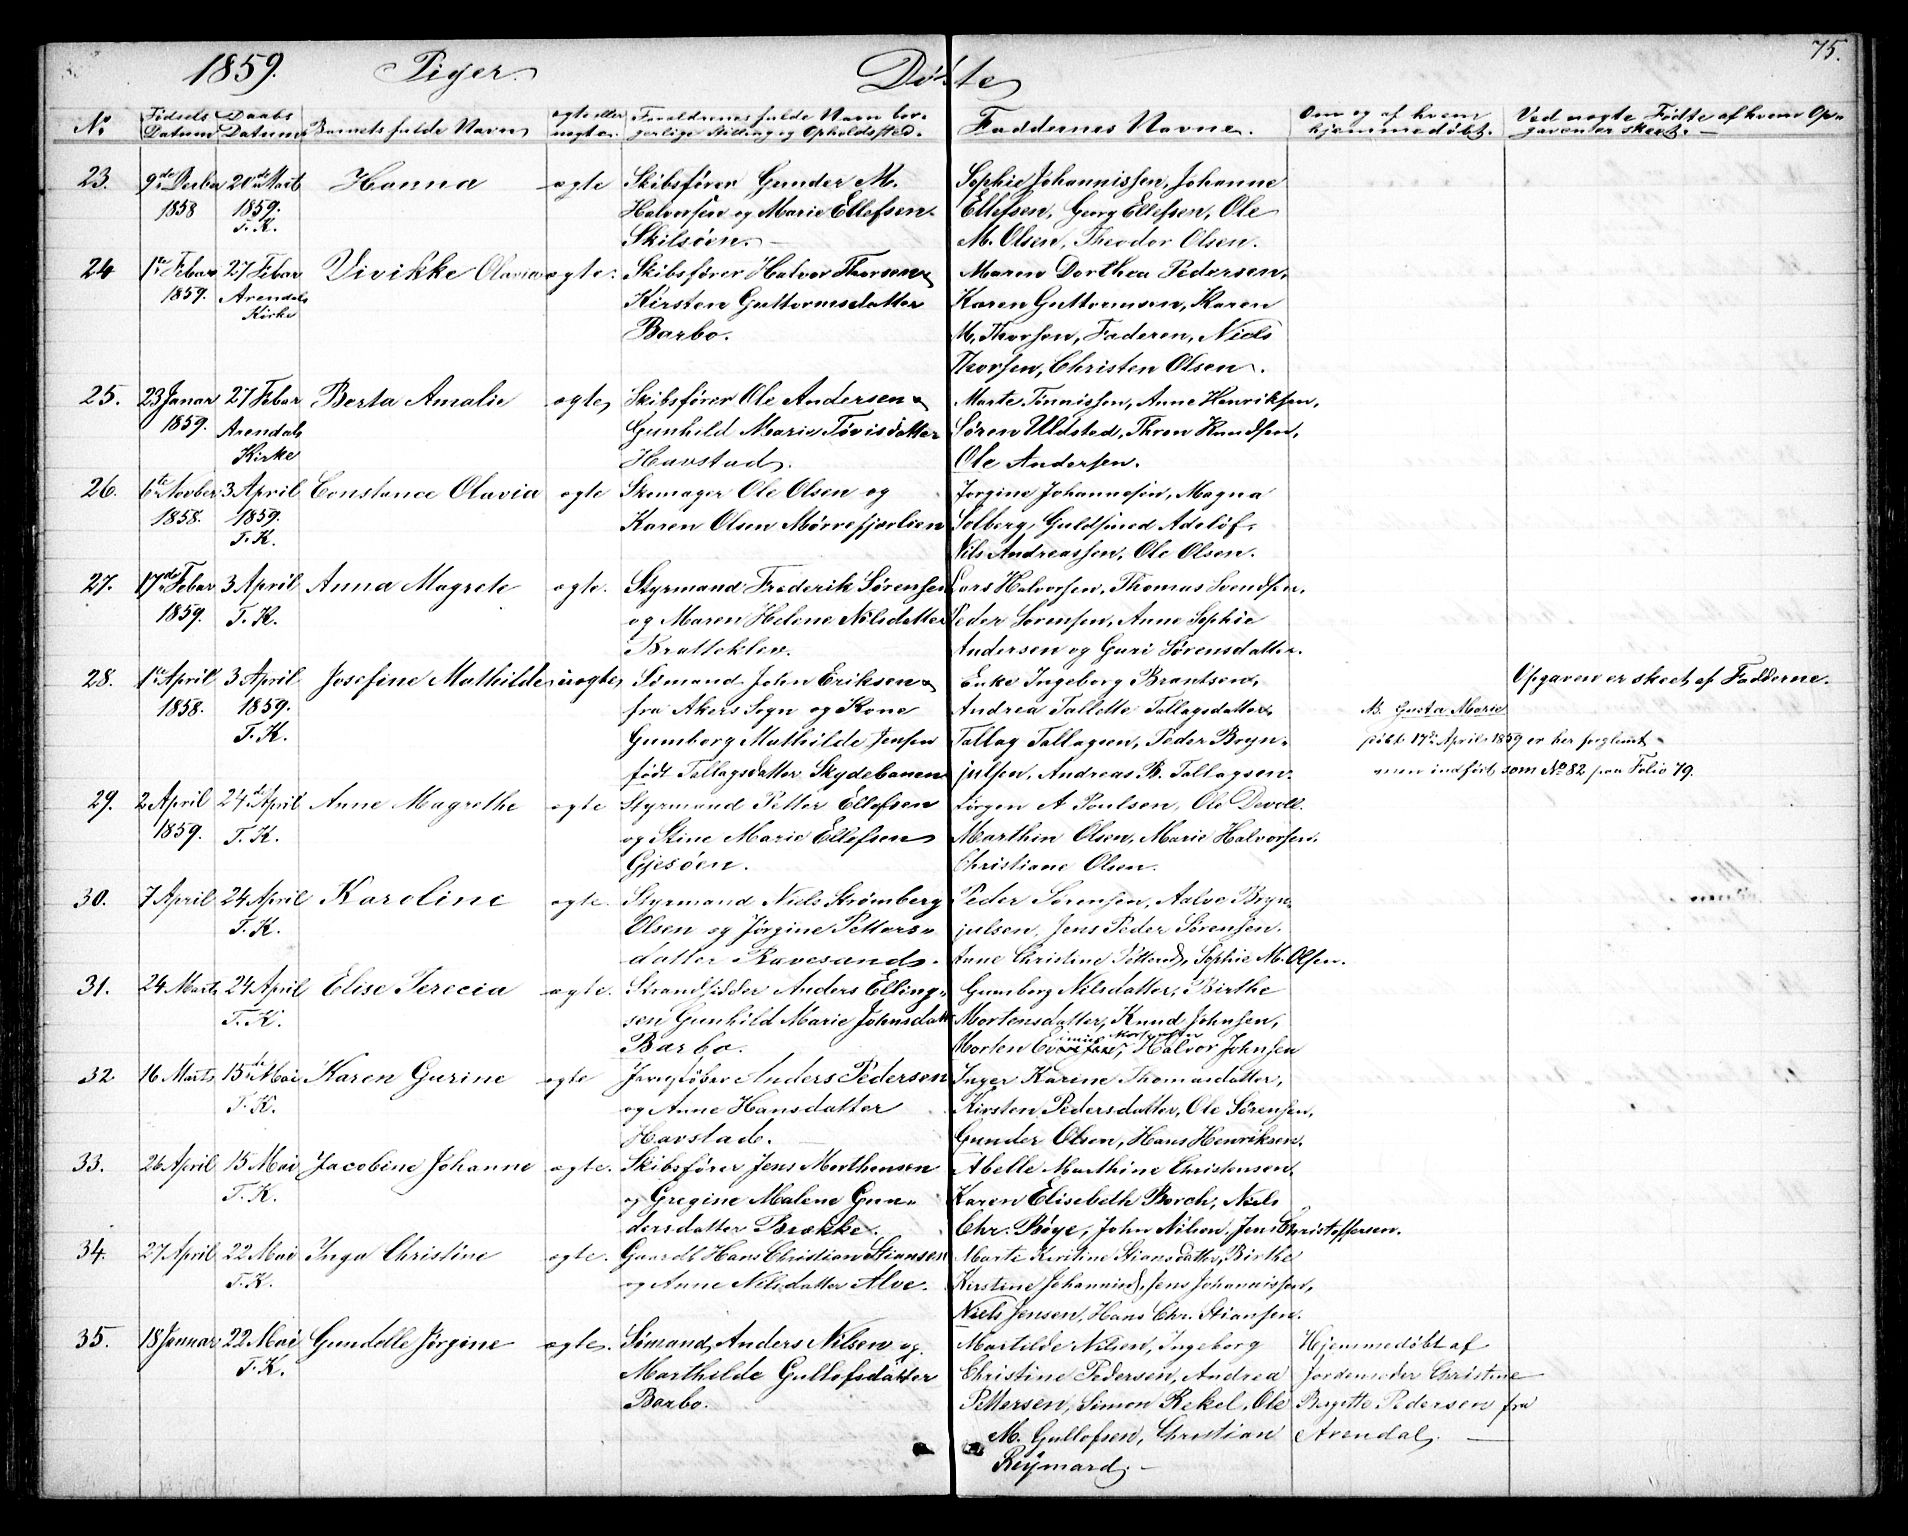 1859. Piger. Døbte 75.
No Fødsels Datum Daabs Datum Barnets fulde Navn ægte eller uægte. Forældrenes fulde Navn borgerlige Stilling og Opholdsted. Faddernes Navne. Om og af hvem hjemmedøbt. Ved uægte Fødte af hvem Opgaven er skeet. —
23. 9de Decbr 20de Mart Hanna ægte Skibsfører Gunder M. Sophie Johannissen, Johanne
1858 1859. Halvorsen og Marie Ellefsen Ellefsen, Georg Ellefsen, Ole
T. K. Skilsöen. — M. Olsen, Theodor Olsen.
24 1ste Febar 27 Febar Vivikke Olavia ægte. Skibsfører Halvor Thorsen Maren Dorthea Pedersen,
1859. Arendals Kirsten Guttormsdatter Karen Guttormsen, Karen
Kirke Barbo. M. Thorsen, Faderen, Niels
Thorsen, Christen Olsen.
25. 23 Januar 27 Febar Berta Amalie ægte Skibsfører Ole Andersen Marte Tønnissen, Anne Henriksen,
1859. Arendals Gunhild Marie Tøvisdatter Søren Uldstad, Thron Knudsen,
Kirke Havstad. Ole Andersen.
26. 6te Novber 3 April Constance Olavia ægte Skomager Ole Olsen og Jorgine Johannesen, Magna
1858. 1859. Karen Olsen Mørrefjærlien Solberg, Guldsmed Adolöf,
T. K. Nils Andreassen, Ole Olsen.
27. 17de Febar 3 April Anna Magrete ægte. Styrmand Frederik Sørensen Lars Halvorsen, Thomas Svendsen,
1859. T. K. og Maren Helene Nilsdatter Peder Sørensen, Anne Sophie
Bratteklev. Andersen og Guri Sørensdatter.
28. 1ste April 3 April Josefine Mathilde uægte Sømand John Eriksen Enke Ingeborg Brantsen, Opgaven er skeet af Fadderne.
1858. 1859. fra Akers Sogn og Kone Andrea Tallette Tallagsdatter, NB. Gusta Marie
T. K. Gumborg Mathilde Jensen Tallag Tallagsen, Peder Bryn- døbt 17de April 1859 er her forglemt
født Tallagsdatter Skydebanen julsen, Andreas B. Tallagsen. men indført som No 82 paa Folio 79.
29. 2 April 24de April Anne Magrethe ægte Styrmand Petter Ellefsen Jørgen A Poulsen, Ole Devoll.
1859. T. K. og Stine Marie Ellefsen Marthin Olsen, Marie Halvorsen,
Gjesöen. Christiane Olsen.
30. 7 April 24 April Karoline ægte. Styrmand Niels Strömberg Peder Sørensen, Aalve Bryn-
T. K. Olsen og Jørgine Petters- julsen, Jens Peder Sørensen.
datter Ravesand. Anne Christine Petters, Sophie M. Olsen.
31. 24 Marts 24 April Elise Terecia ægte. Strandsidder Anders Elling- Gumborg Nilsdatter, Birthe
T. K. sen Gunhild Marie Johnsdatt Mortensdatter, Knud Johnsen,
Barbo. Morten Halvor Johnsen
32 16 Marts 15de Mai Karen Gurine ægte Anders Pedersen Inger Karine Thomasdatter,
T. K. og Anne Hansdatter Kirsten Pedersdatter, Ole Sørensen,
Havstad. Gunder Olsen, Hans Henriksen.
33. 26 April 15 Mai Jacobine Johanne ægte. Skibsfører Jens Morthensen Abelle Mathine Christensen,
T. K. og Gregine Malene Gun- Karen Elisebeth Borch, Niels
dersdatter Brekke. Chr. Bøye, John Nilsen, Jens Christoffersen.
34. 27 April 22 Mai Inga Christine ægte. Gaardb Hans Christian Stiansen Marte Kirstine Stiansdatter, Birthe
T. K. og Anne Nilsdatter Alve. Kirstine Johannisd, Jens Johannissen,
Niels Jensen, Hans Chr. Stiansen.
35. 18 Januar 22 Mai Gundelle Jørgine ægte. Sømand, Anders Nilsen og Martilde Nilsen, Ingeborg Hjemmedøbt af
T. K. Marthilde Gullofsdatter Christine Pedersen, Andrea Jordemoder Christine
Barbo. Pettersen, Simon Rekel, Ole Birgitte Pedersen fra
M. Gullofsen, Christian Arendal. —
Reymard. —